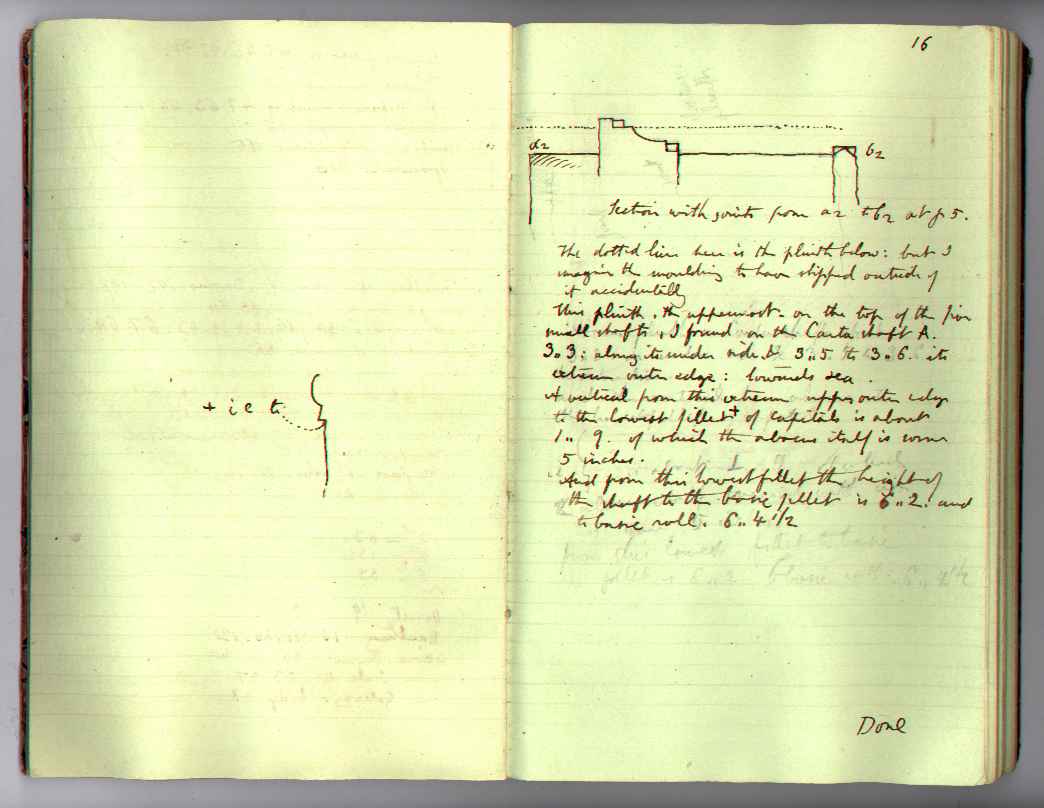 + i e to
16
a2
b2
Section with joints from a2 to b2 at p 5.
The dotted line here is the plinth below: but I
imagine the moulding to have slipped outside of
it accidentally
This plinth, the uppermost - on the top of the five
small shafts, I found on the Carta shaft A.
3,,3: along its under side. & 3,,5 to 3,,6. its
extreme outer edge: towards sea.
A vertical from this extreme upper outer edge
to the lowest fillet + of capitals is about
1,, 9. of which the abacus itself is some
5 inches.
And from this lowest fillet the height of
the shaft to the basic fillet is 6,,2. and
to basic roll. 6,,4 1/2
from this lowest fillet to basic
fillet is 6,,2 basic roll. 6,,4 1/2
Done